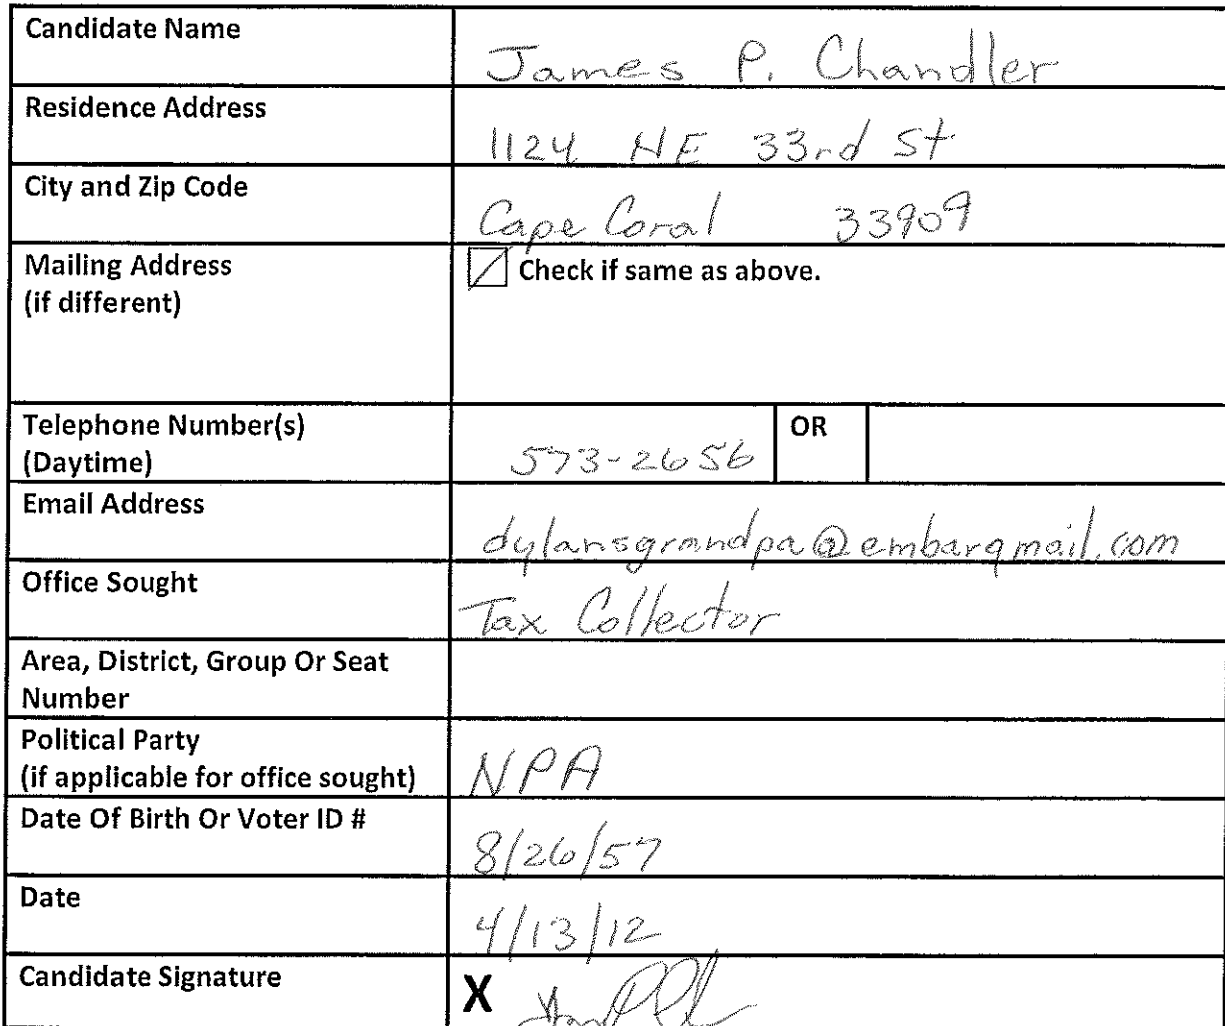 Candidate Name James P. Chandler
Residence Address 1124 NE 33rd St
City and Zip Code Cape Coral 33909
Mailing Address
(if different)
Check if same as above.
Telephone Number(s)
(Daytime) 573-2656 OR
Email Address dylansgrandpa@embarqmail.com
Office Sought Tax Collector
Area, District, Group Or Seat
Number
Political Party
(if applicable for office sought) NPA
Date Of Birth Or Voter ID # 8/26/57
Date 4/13/12
Candidate Signature X